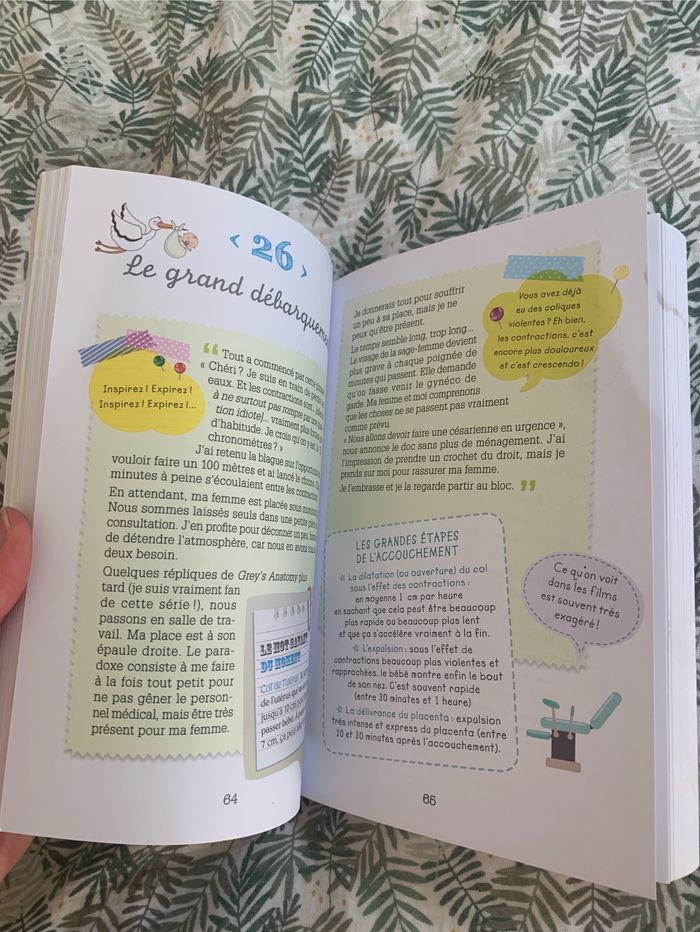 ‹ 26 ›
Le grand débarqueme
Inspirez ! Expirez !
Inspirez ! Expirez !...
“ Tout a commencé par cette
« Chéri ? Je suis en train de perdre
eaux. Et les contractions sont...
à ne surtout pas rompre par une
tion idiote]... vraiment plus fortes
d'habitude. Je crois qu'on y est. Tu
chronomètres ? »
J'ai retenu la blague sur l'opportunité
vouloir faire un 100 mètres et ai lancé le chrono.
minutes à peine s'écoulaient entre les contractions.
En attendant, ma femme est placée sous
Nous sommes laissés seuls dans une petite
consultation. J'en profite pour déconner un peu,
de détendre l'atmosphère, car nous en avons
deux besoin.
Quelques répliques de Grey's Anatomy plus
tard (je suis vraiment fan
de cette série !), nous
passons en salle de tra-
vail. Ma place est à son
épaule droite. Le para-
doxe consiste à me faire
à la fois tout petit pour
ne pas gêner le person-
nel médical, mais être très
présent pour ma femme.
LE MOT SAVANT
DU MOMENT
Col de l'utérus :
de l'utérus qui
jusqu'à 10 cm
passer bébé. À
7 cm, ça
64
Je donnerais tout pour souffrir
un peu à sa place, mais je ne
peux qu'être présent.
Le temps semble long, trop long...
Le visage de la sage-femme devient
plus grave à chaque poignée de
minutes qui passent. Elle demande
qu'on fasse venir le gynéco de
garde. Ma femme et moi comprenons
que les choses ne se passent pas vraiment
comme prévu.
« Nous allons devoir faire une césarienne en urgence »,
nous annonce le doc sans plus de ménagement. J'ai
l'impression de prendre un crochet du droit, mais je
prends sur moi pour rassurer ma femme.
Je l'embrasse et je la regarde partir au bloc. ”
Vous avez déjà
eu des coliques
violentes ? Eh bien,
les contractions, c'est
encore plus douloureux
et c'est crescendo !
LES GRANDES ÉTAPES
DE L'ACCOUCHEMENT
☆ La dilatation (ou ouverture) du col
sous l'effet des contractions :
en moyenne 1 cm par heure
en sachant que cela peut être beaucoup
plus rapide ou beaucoup plus lent
et que ça s'accélère vraiment à la fin.
☆ L'expulsion : sous l'effet de
contractions beaucoup plus violentes et
rapprochées, le bébé montre enfin le bout
de son nez. C'est souvent rapide
(entre 30 minutes et 1 heure)
☆ La délivrance du placenta : expulsion
très intense et express du placenta (entre
20 et 30 minutes après l'accouchement).
Ce qu'on voit
dans les films
est souvent très
exagéré !
65